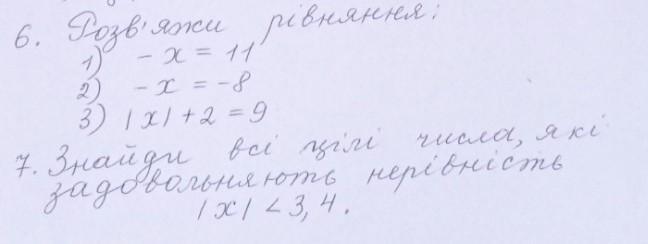 6. Розв'яжи рівняння:
1) -x = 11
2) -x = -8
3) |x| + 2 = 9
7. Знайди всі цілі числа, які
задовольняють нерівність
|x| < 3,4.